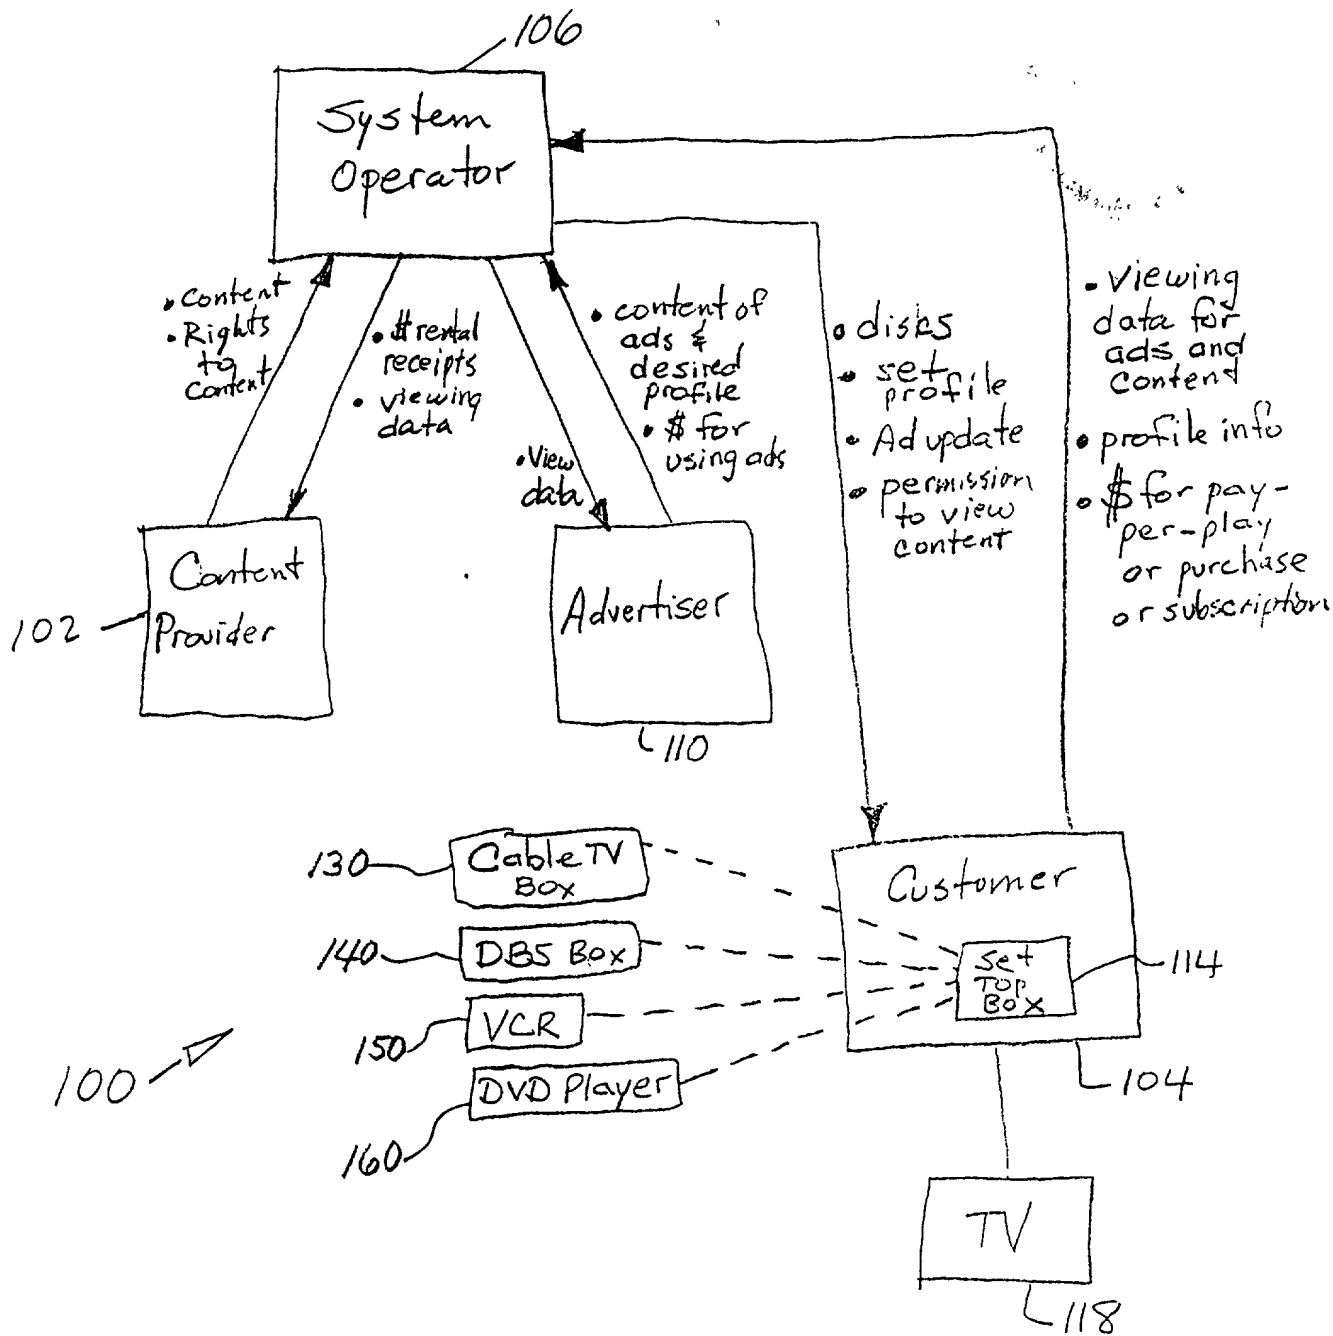 106
System
Operator
• Content
• Rights
to
Content
• $ rental
receipts
• viewing
data
• View
data
• content of
ads &
desired
profile
• $ for
using ads
• disks
• set
profile
• Ad update
• permission
to view
content
• viewing
data for
ads and
content
• profile info
• $ for pay-
per-play
or purchase
or subscription
Content
Provider
102
Advertiser
110
130
Cable TV
Box
140
DBS Box
150
VCR
160
DVD Player
100
Customer
Set
TOP
BOX
114
104
TV
118